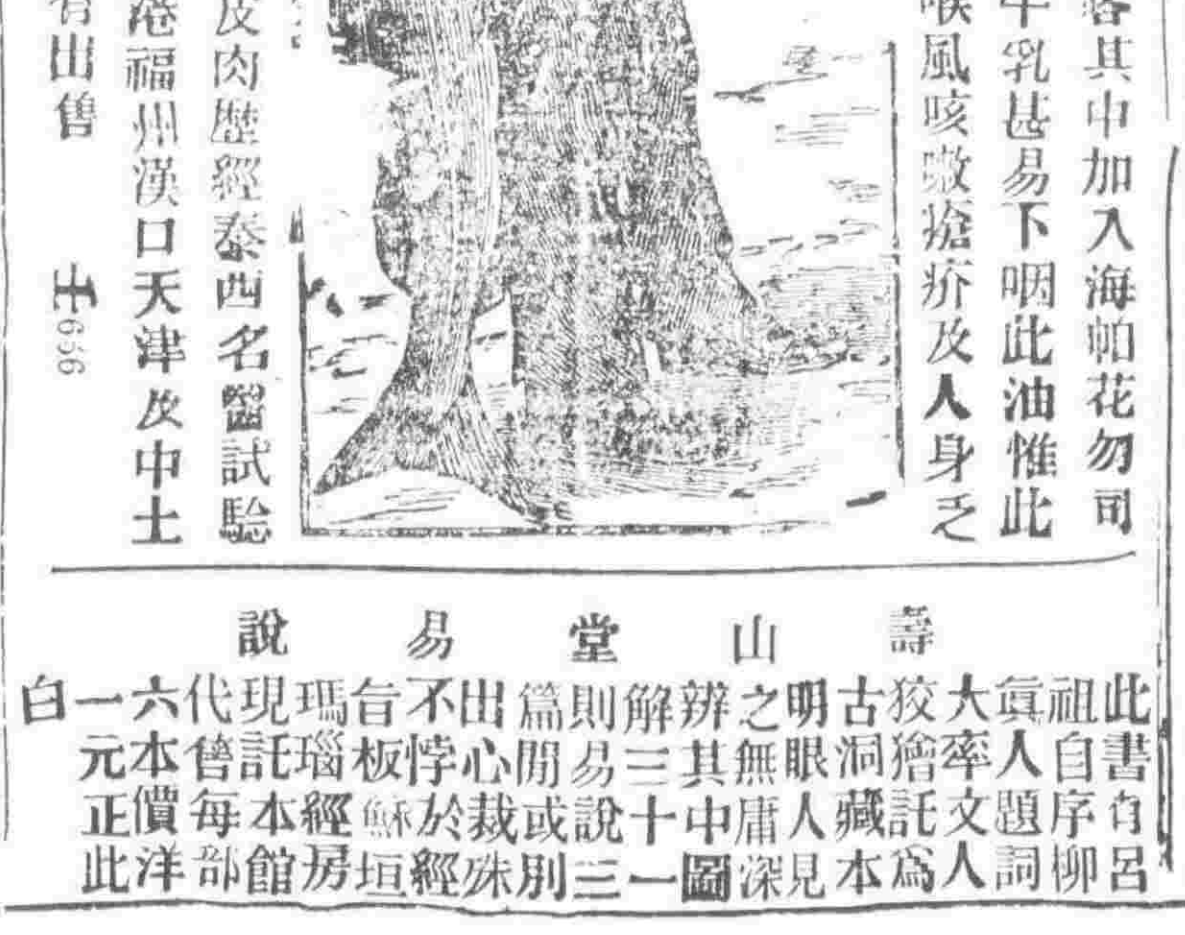 其中加入海帕花勿司
乳甚易下咽此油惟此
風咳嗽瘡疥及人身乏
皮肉歷經泰西名醫試驗
港福州漢口天津及中土
有出售
壬656
壽山堂易說
此書有呂
祖自序柳
眞人題詞
大率文人
狡獪託爲
古洞藏本
明眼人見
之無庸深
辨其中圖
解三十一
則易說三
篇閒或別
出心裁殊
不悖於經
旨板蘇垣
瑪瑙經房
現託本館
代售每部
六本價洋
一元正此
白